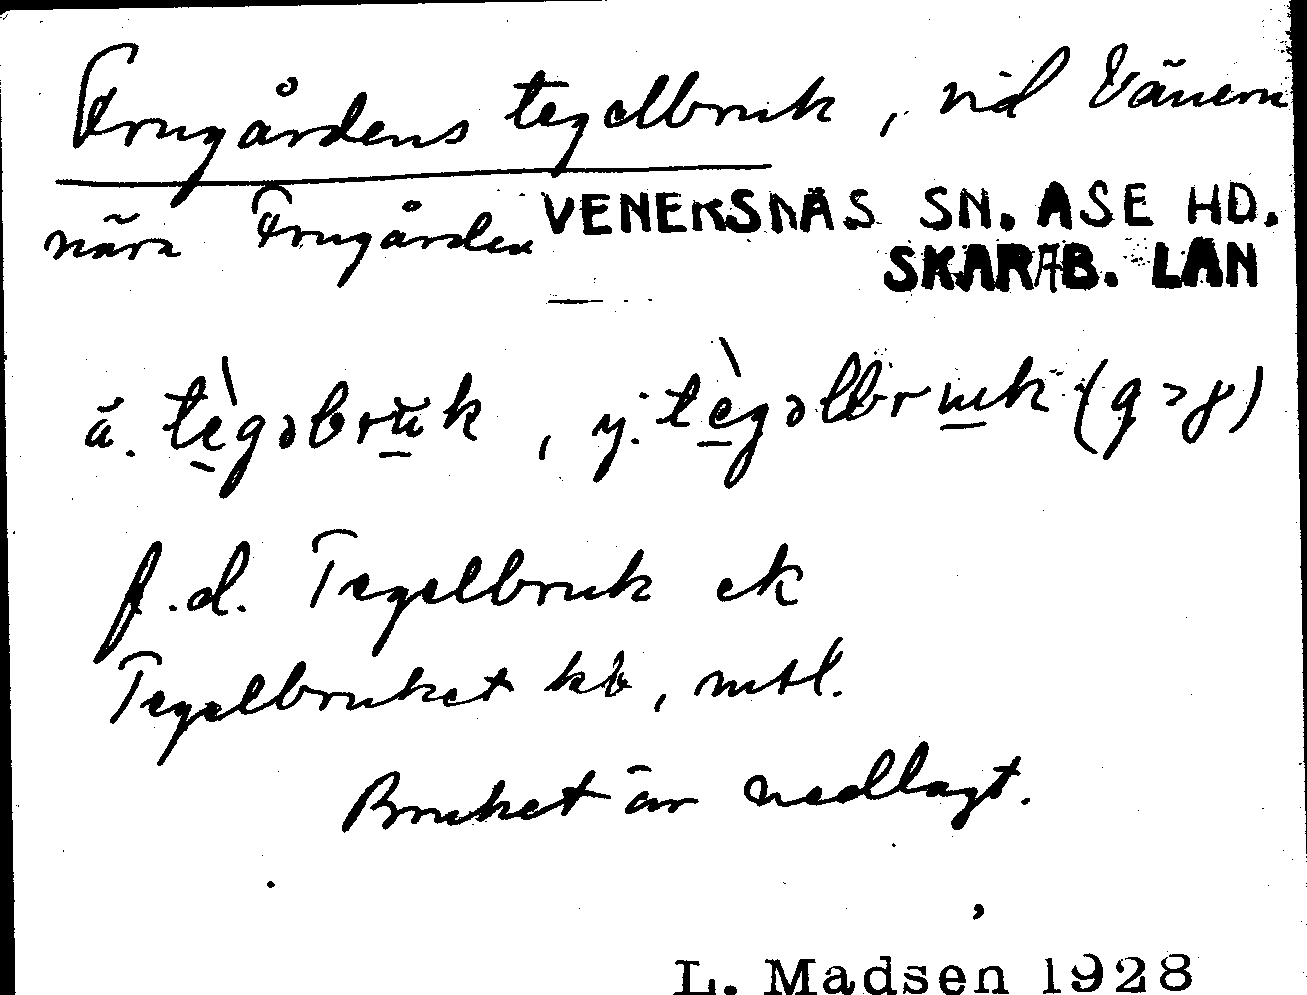 Frugårdens tegelbruk, vid Vänern
nära Frugården VENERSNÄS SN. ÅSE HD.
SKARAB. LÄN
ä. tègəbruk, y. tègəlbruk (g > ɣ)
f.d. Tegelbruk ek
Tegelbruket kb, mtl.
Bruket är nedlagt.
L. Madsen 1928